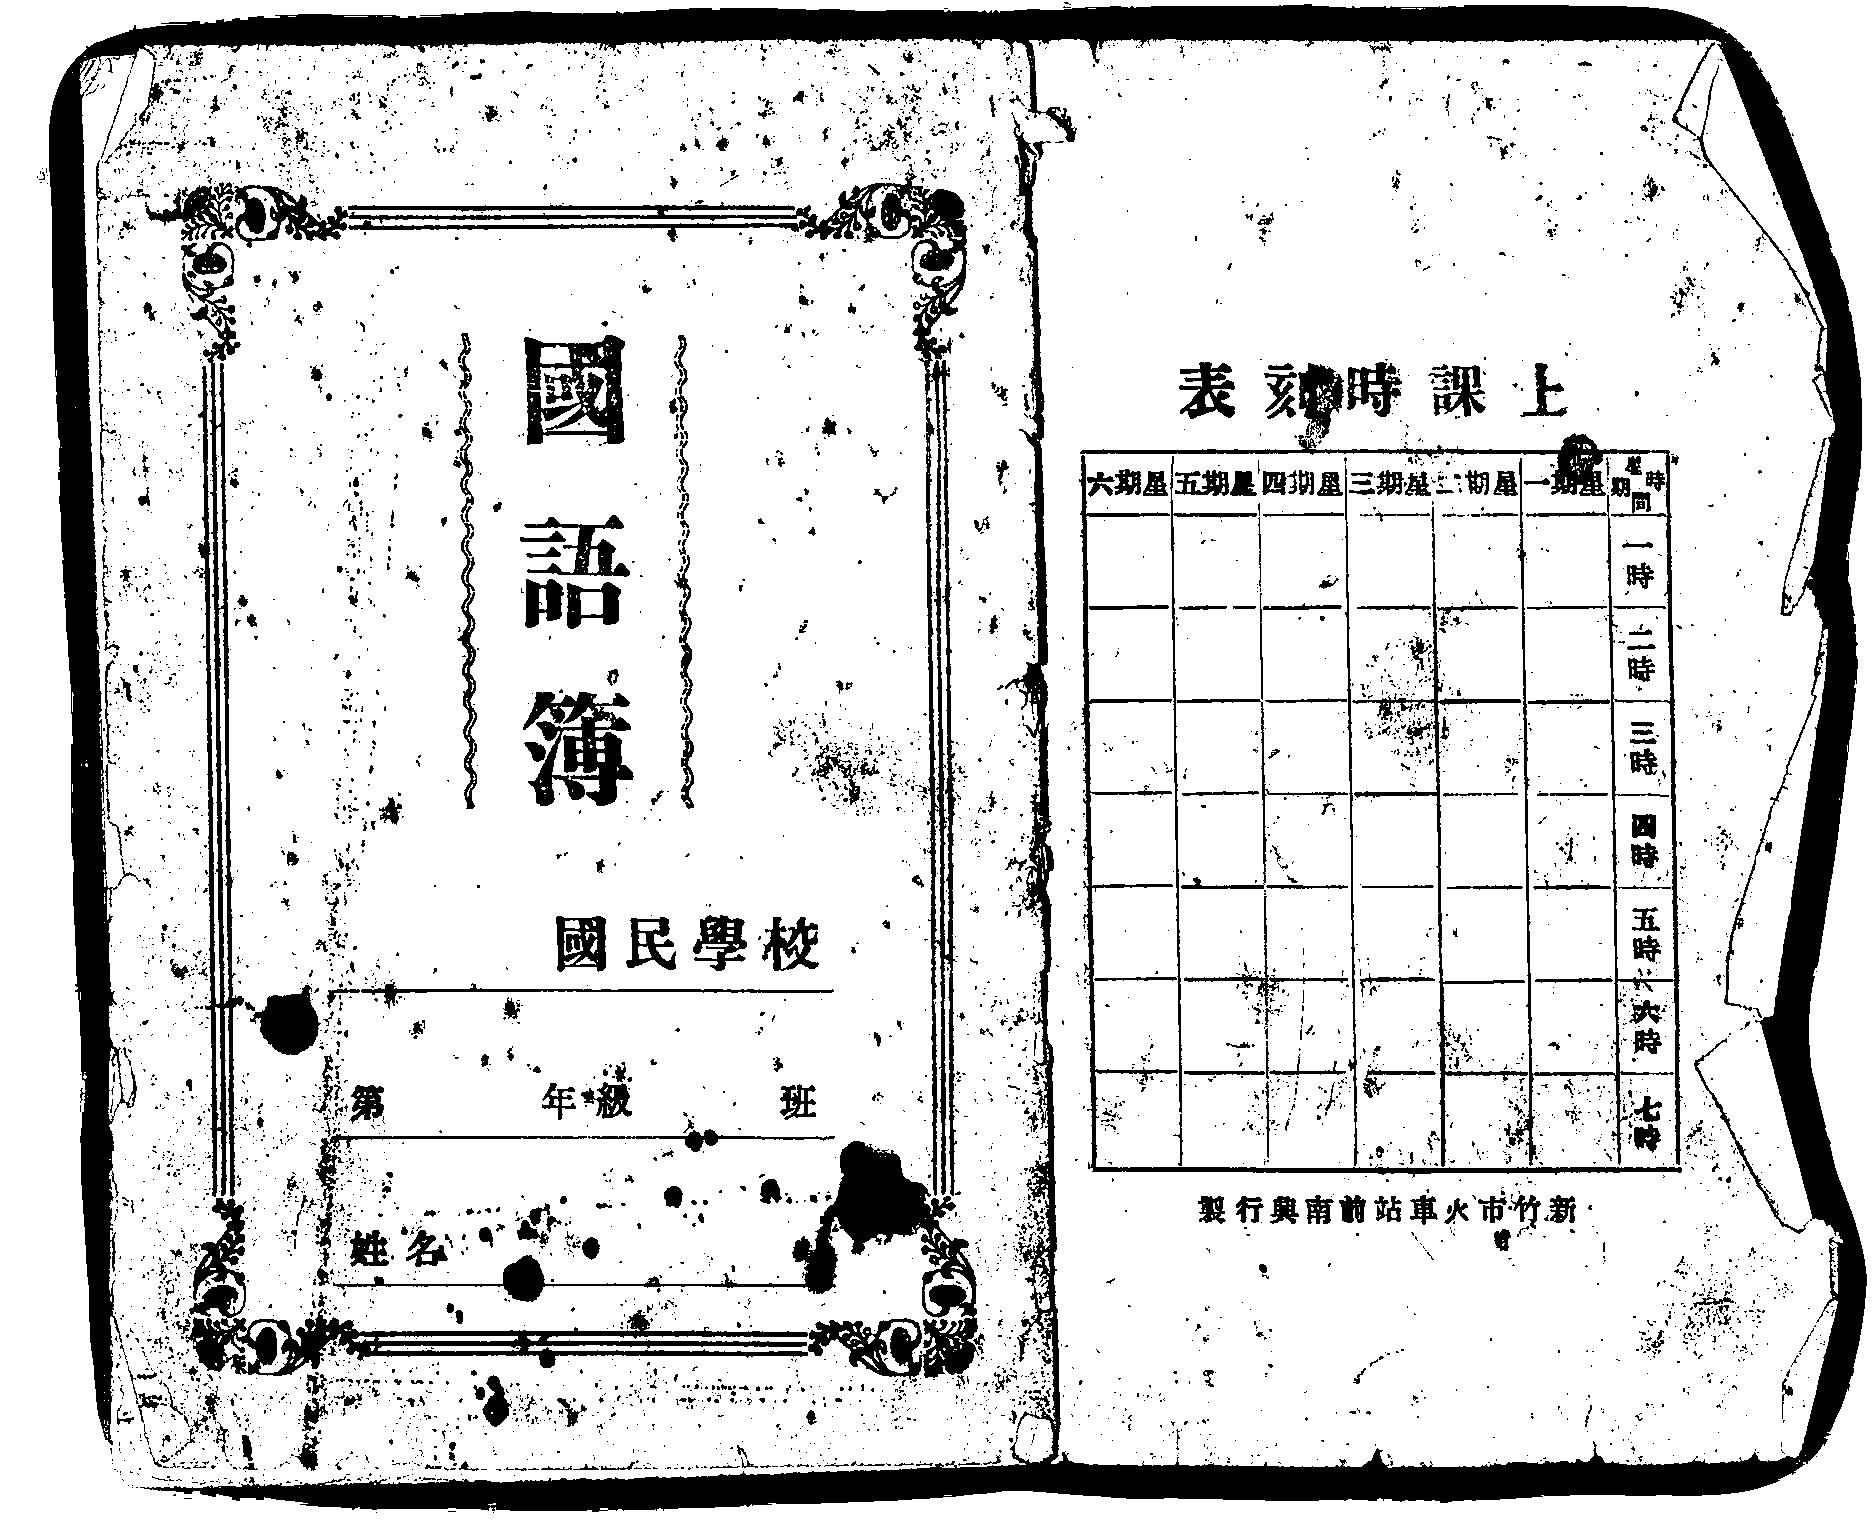 國語簿
國民學校
第 年級 班
姓名
上課時刻表
時間 星期 星期一 星期二 星期三 星期四 星期五 星期六
一時
二時
三時
四時
五時
六時
七時
新竹市火車站前南興行製